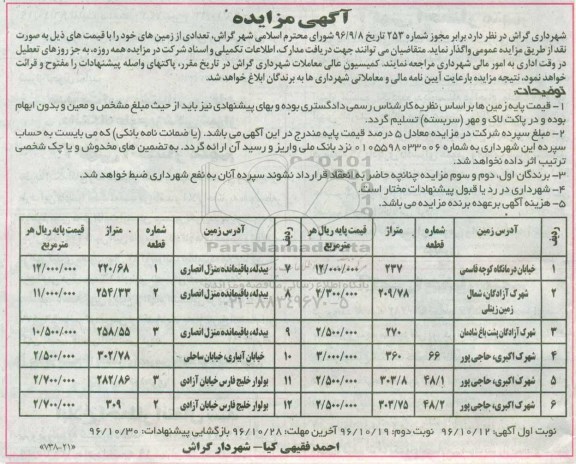 آگهی مزایده
شهرداری گراش در نظر دارد برابر مجوز شماره ۲۵۳ تاریخ ۹۶/۹/۸ شورای محترم اسلامی شهر گراش، تعدادی از زمین های خود را با قیمت های ذیل به صورت
نقد از طریق مزایده عمومی واگذار نماید. متقاضیان می توانند جهت دریافت مدارک، اطلاعات تکمیلی و اسناد شرکت در مزایده همه روزه، به جز روزهای تعطیل
در وقت اداری به امور مالی شهرداری مراجعه نمایند. کمیسیون عالی معاملات شهرداری گراش در تاریخ مقرر، پاکتهای واصله پیشنهادات را مفتوح و قرائت
خواهد نمود. نتیجه مزایده بارعایت آیین نامه مالی و معاملاتی شهرداری ها به برندگان ابلاغ خواهد شد.
توضیحات:
۱- قیمت پایه زمین ها بر اساس نظریه کارشناس رسمی دادگستری بوده و بهای پیشنهادی نیز باید از حیث مبلغ مشخص و معین و بدون ابهام
بوده و در پاکت لاک و مهر (سربسته) تسلیم گردد.
۲- مبلغ سپرده شرکت در مزایده معادل ۵ درصد قیمت پایه مندرج در این آگهی می باشد. (یا ضمانت نامه بانکی) که می بایست به حساب
سپرده این شهرداری به شماره ۰۱۰۵۵۹۸۰۳۳۰۰۶ نزد بانک ملی واریز و رسید آن ارائه گردد. به تضمین های مخدوش و یا چک شخصی
ترتیب اثر داده نخواهد شد.
۳- برندگان اول، دوم و سوم مزایده چنانچه حاضر به انعقاد قرارداد نشوند سپرده آنان به نفع شهرداری ضبط خواهد شد.
۴- شهرداری در رد یا قبول پیشنهادات مختار است.
۵- هزینه آگهی برعهده برنده مزایده می باشد.
ردیف | آدرس زمین | شماره قطعه | متراژ | قیمت پایه ریال هر مترمربع | ردیف | آدرس زمین | شماره قطعه | متراژ | قیمت پایه ریال هر مترمربع
۱ | خیابان درمانگاه کوچه قاسمی | | ۲۳۷ | ۱۲/۰۰۰/۰۰۰ | ۷ | بیدله، باقیمانده منزل انصاری | ۱ | ۲۲۰/۶۸ | ۱۲/۰۰۰/۰۰۰
۲ | شهرک آزادگان، شمال زمین زینلی | | ۲۰۹/۷۸ | ۲/۳۰۰/۰۰۰ | ۸ | بیدله، باقیمانده منزل انصاری | ۲ | ۲۵۴/۳۳ | ۱۱/۰۰۰/۰۰۰
۳ | شهرک آزادگان پشت باغ شادمان | | ۲۷۰ | ۲/۵۰۰/۰۰۰ | ۹ | بیدله، باقیمانده منزل انصاری | ۳ | ۲۵۸/۵۵ | ۱۰/۵۰۰/۰۰۰
۴ | شهرک اکبری، حاجی پور | ۶۶ | ۳۶۰ | ۳/۰۰۰/۰۰۰ | ۱۰ | خیابان آبیاری، خیابان ساحلی | | ۳۰۲/۷۸ | ۲/۵۰۰/۰۰۰
۵ | شهرک اکبری، حاجی پور | ۴۸/۱ | ۳۰۳/۸ | ۲/۵۰۰/۰۰۰ | ۱۱ | بولوار خلیج فارس خیابان آزادی | ۳ | ۲۸۲/۸۶ | ۲/۷۰۰/۰۰۰
۶ | شهرک اکبری، حاجی پور | ۴۸/۲ | ۳۰۳/۷۵ | ۲/۵۰۰/۰۰۰ | ۱۲ | بولوار خلیج فارس خیابان آزادی | ۲ | ۳۰۹ | ۲/۷۰۰/۰۰۰
نوبت اول آگهی: ۹۶/۱۰/۱۲ نوبت دوم: ۹۶/۱۰/۱۹ آخرین مهلت: ۹۶/۱۰/۲۸ بازگشایی پیشنهادات: ۹۶/۱۰/۳۰
احمد فقیهی کیا - شهردار گراش
«۷۳۸۰۲۱»